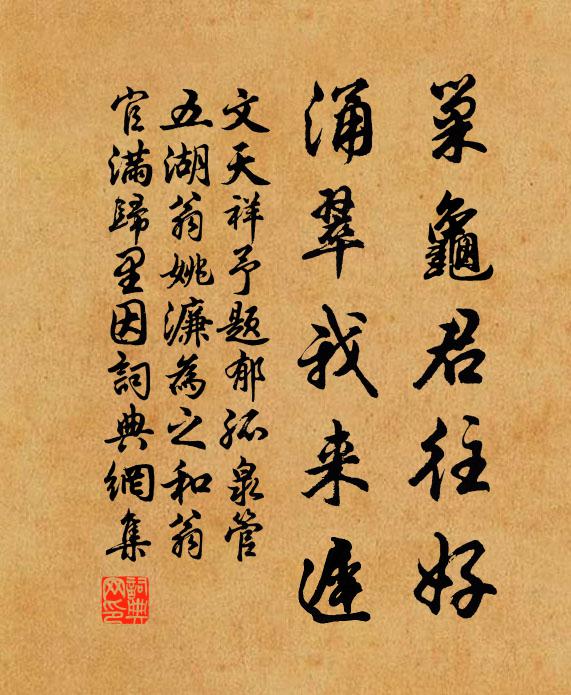 巢龜君往好
涌翠我来遲
文天祥予題郁孤泉管
五湖翁姚濂為之和翁
官滿歸里因詞典網集
詞典網印